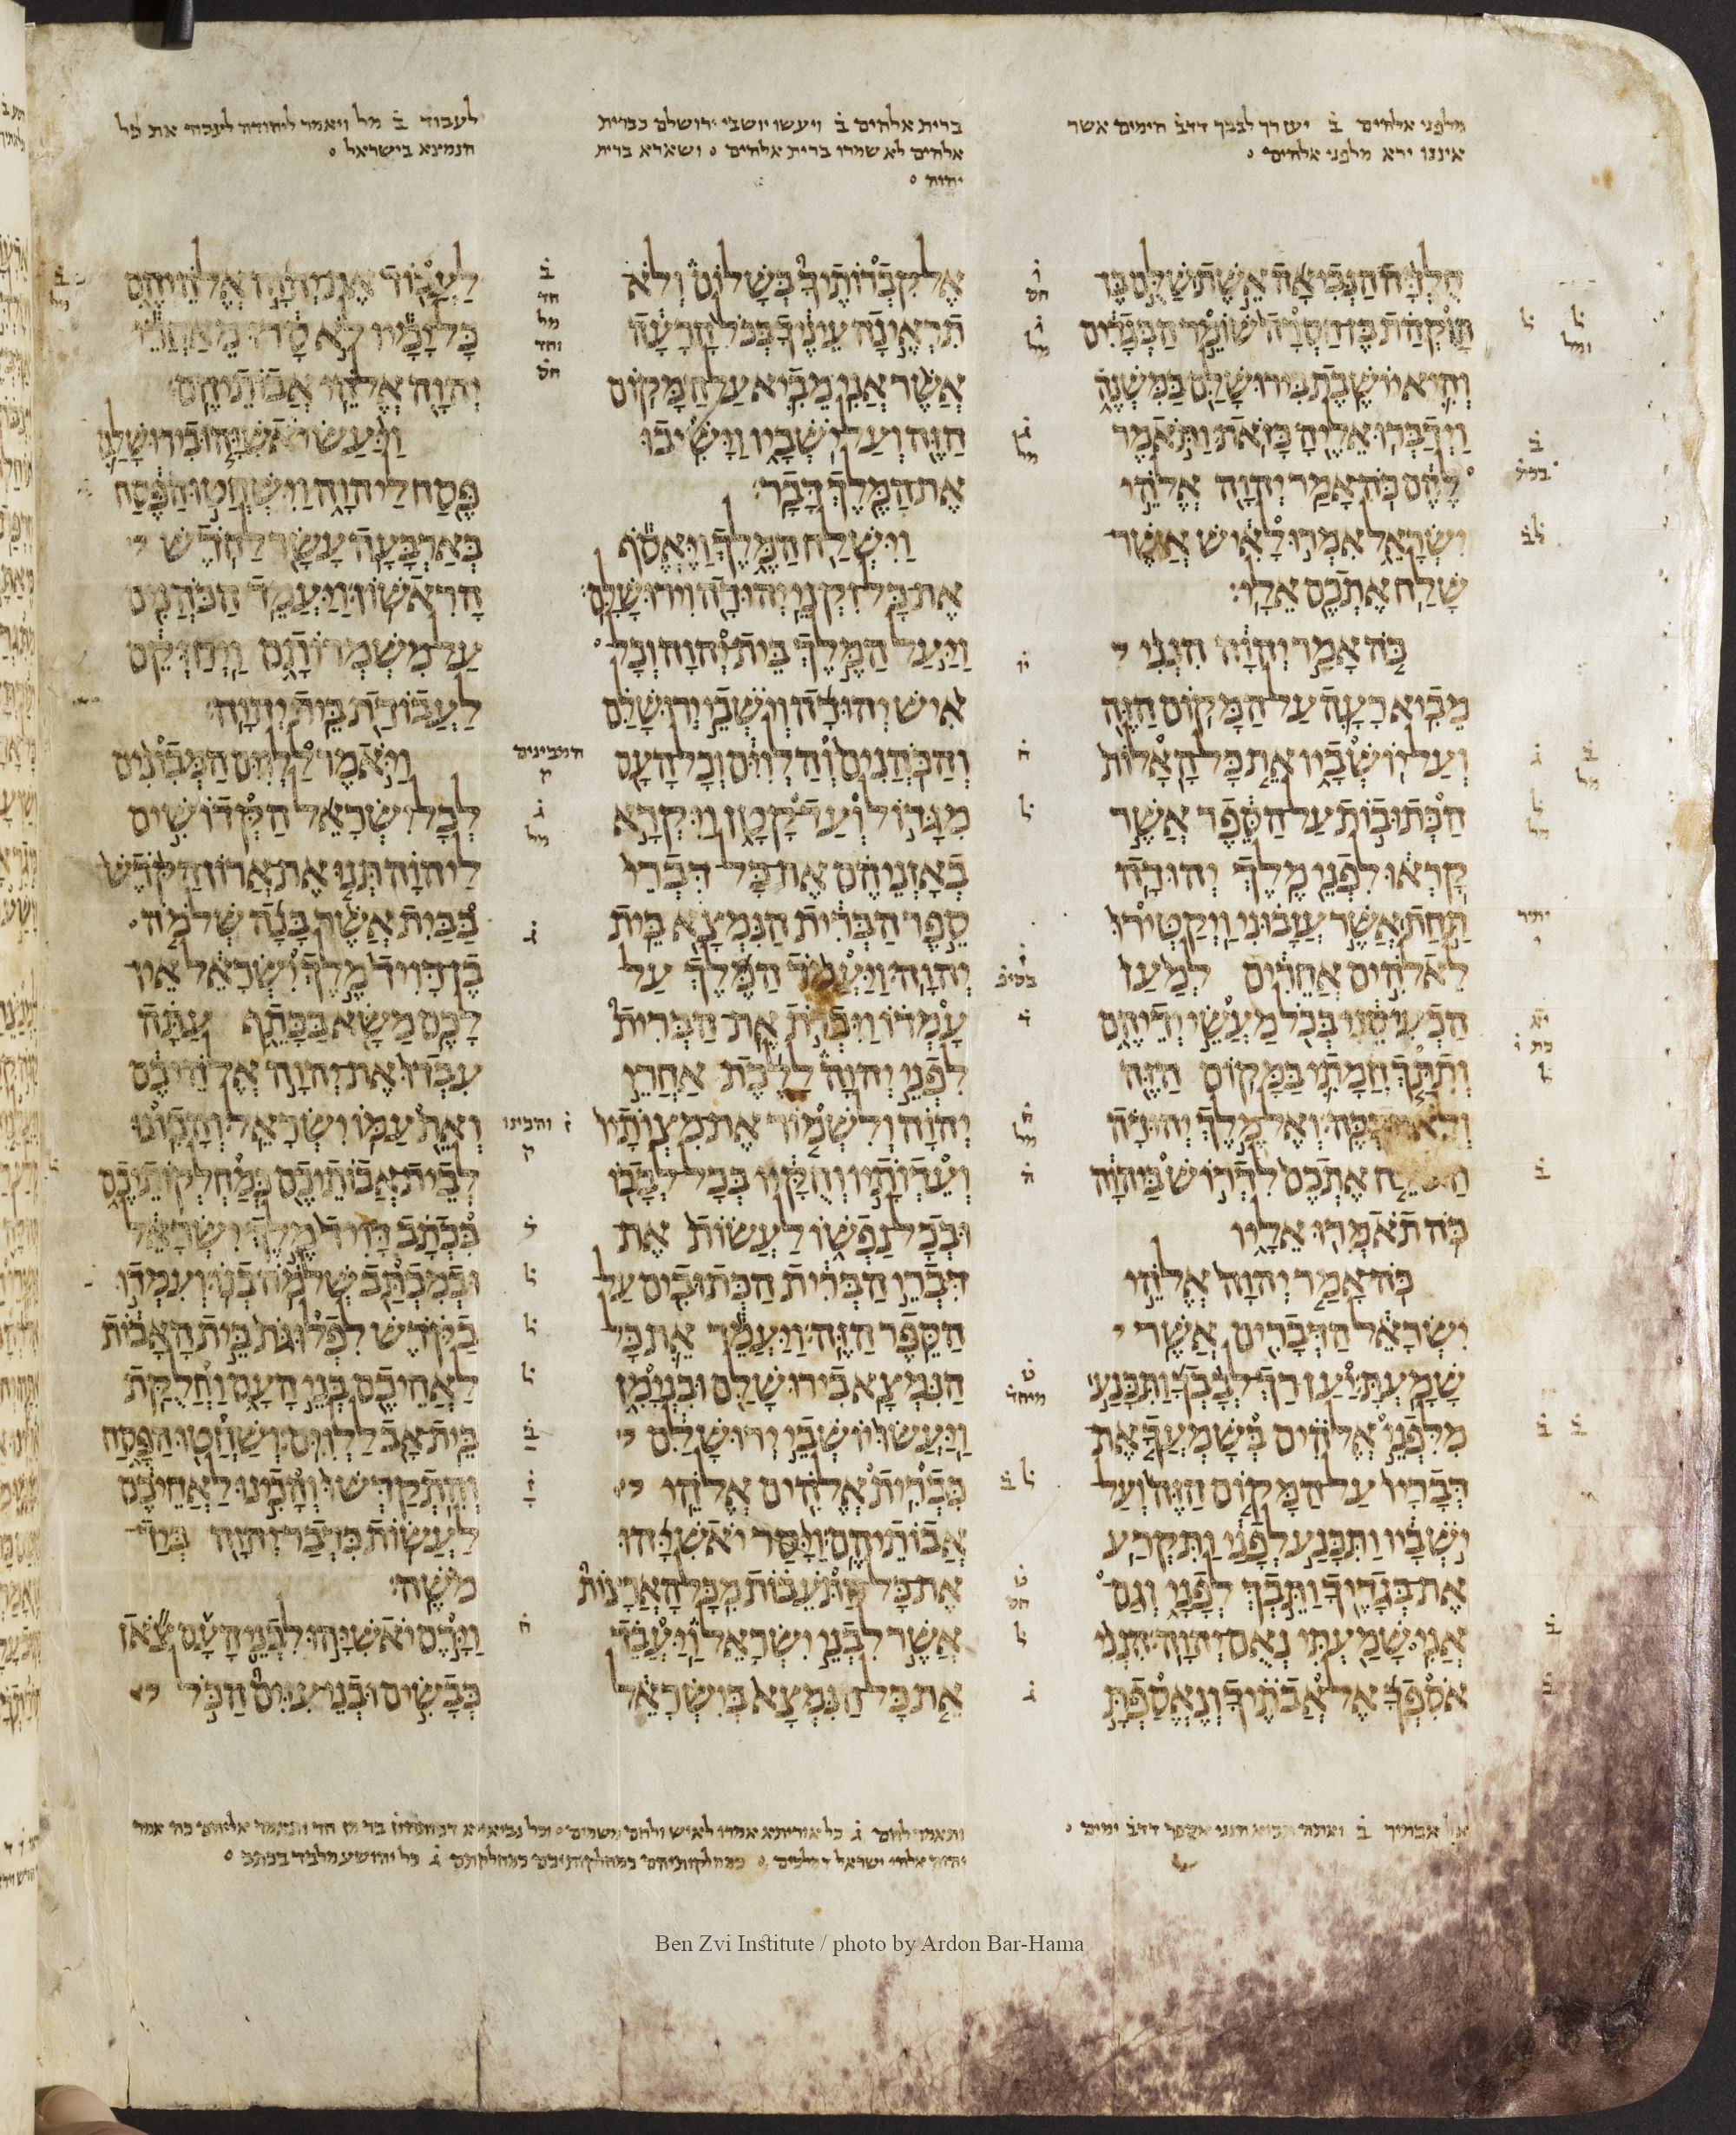 מלפני אלהים ב יען רך לבבך דדב הימים אשר
איננו ירא מלפני אלהים
ברית אלהים ב ויעשו יושבי ירושלם כברית
אלהים לא שמרו ברית אלהים ושארא ברית
יהוה
לעבוד ב מל ויאמר ליהודה לעבוד את כל
הנמצא בישראל
חלדה הנביאה אשת שלם בן
תוקהת בן חסרה שומר הבגדים
והיא יושבת בירושלם במשנה
וידברו אליה כזאת ותאמר
להם כה אמר יהוה אלהי
ישראל אמרו לאיש אשר
שלח אתכם אלי
כה אמר יהוה הנני
מביא רעה על המקום הזה
ועל יושביו את כל האלות
הכתובות על הספר אשר
קראו לפני מלך יהודה
תחת אשר עזבוני ויקטירו
לאלהים אחרים למען
הכעיסני בכל מעשי ידיהם
ותתך חמתי במקום הזה
ולא תכבה ואל מלך יהודה
השלח אתכם לדרוש ביהוה
כה תאמרו אליו
כה אמר יהוה אלהי
ישראל הדברים אשר
שמעת יען רך לבבך ותכנע
מלפני אלהים בשמעך את
דבריו על המקום הזה ועל
ישביו ותכנע לפני ותקרע
את בגדיך ותבך לפני וגם
אני שמעתי נאם יהוה הנני
אספך אל אבתיך ונאספת
אל קברתיך בשלום ולא
תראינה עיניך בכל הרעה
אשר אני מביא על המקום
הזה ועל ישביו וישיבו
את המלך דבר
וישלח המלך ויאסף
את כל זקני יהודה וירושלם
ויעל המלך בית יהוה וכל
איש יהודה וישבי ירושלם
והכהנים והלוים וכל העם
מגדול ועד קטן ויקרא
באזניהם את כל דברי
ספר הברית הנמצא בית
יהוה ויעמד המלך על
עמדו ויכרת את הברית
לפני יהוה ללכת אחרי
יהוה ולשמור את מצותיו
ועדותיו וחקיו בכל לבבו
ובכל נפשו לעשות את
דברי הברית הכתובים על
הספר הזה ויעמד את כל
הנמצא בירושלם ובנימן
ויעשו יושבי ירושלם
כברית אלהים אלהי
אבותיהם ויסר יאשיהו
את כל התועבות מכל הארצות
אשר לבני ישראל ויעבד
את כל הנמצא בישראל
לעבוד את יהוה אלהיהם
כל ימיו לא סרו מאחרי
יהוה אלהי אבותיהם
ויעש יאשיהו בירושלם
פסח ליהוה וישחטו הפסח
בארבעה עשר לחדש
הראשון ויעמד הכהנים
על משמרותם ויחזקם
לעבודת בית יהוה
ויאמר ללוים המבונים
לכל ישראל הקדושים
ליהוה תנו את ארון הקדש
בבית אשר בנה שלמה
בן דויד מלך ישראל אין
לכם משא בכתף עתה
עבדו את יהוה אלהיכם
ואת עמו ישראל והכונו
לבית אבותיכם כמחלקותיכם
בכתב דויד מלך ישראל
ובמכתב שלמה בנו ועמדו
בקדש לפלגות בית האבות
לאחיכם בני העם וחלקת
בית אב ללוים ושחטו הפסח
והתקדשו והכינו לאחיכם
לעשות כדבר יהוה ביד
משה
וירם יאשיהו לבני העם צאן
כבשים ובני עזים הכל
אל אבתיך ב ואתה תבוא הנני אספך דדב ימים
ותאמר להם ג כל אוריתא אמרו לאיש
יהוה אלהי ישראל דמלכים כמחלקותיכם כמחלקתם ג כל יהושע מלבד בכתב
Ben Zvi Institute / photo by Ardon Bar-Hama